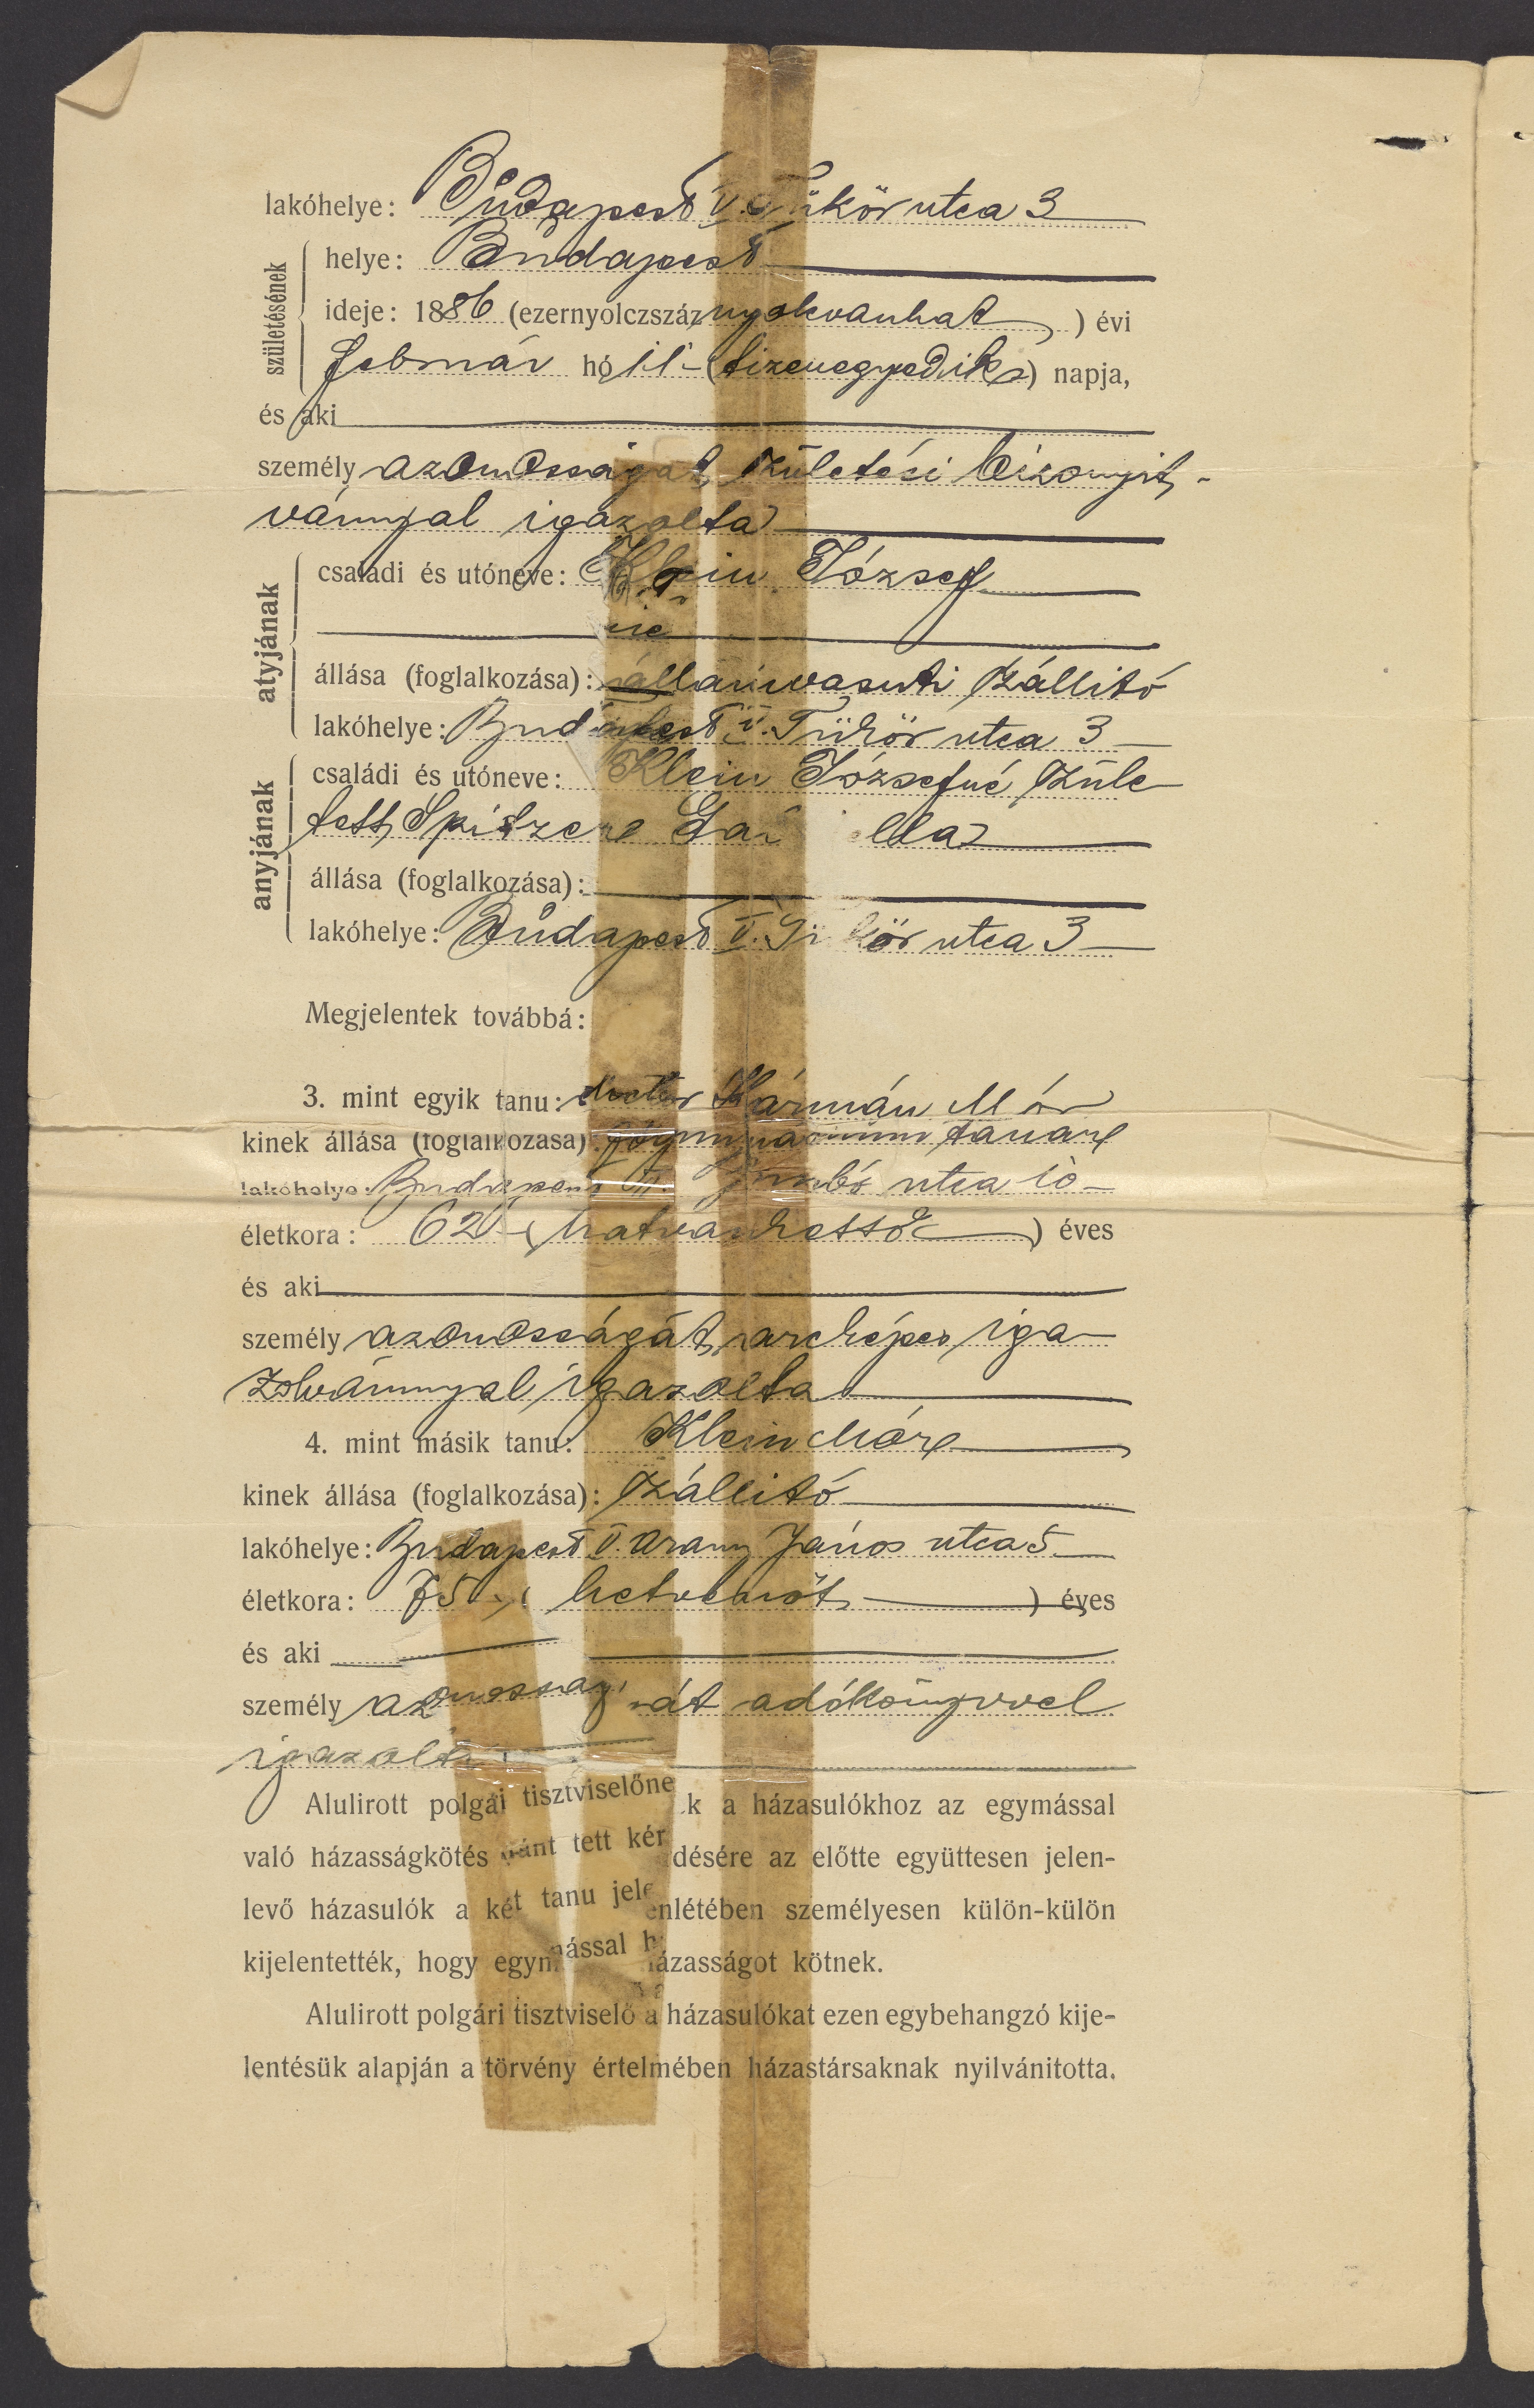 lakóhelye: Budapest V. Tükör utca 3
születésének
helye: Budapest
ideje: 1886 (ezernyolczszáz nyolcvanhat) évi
február hó 11 (tizenegyedik) napja,
és aki
személyazonosságát születési bizonyit-
vánnyal igazolta
atyjának
családi és utóneve: Klein József
állása (foglalkozása): államvasuti szállitó
lakóhelye: Budapest V. Tükör utca 3
anyjának
családi és utóneve: Klein Józsefné szüle
tett Spitzer
állása (foglalkozása):
lakóhelye: Budapest V. Tükör utca 3
Megjelentek továbbá:
3. mint egyik tanu: doctor Kármán Mór
kinek állása (foglalkozása): főgymnasiumi tanár
lakóhelye: Budapest utca 10
életkora: 62 (hatvankettő) éves
és aki
személyazonosságát arcképes iga
zolvánnyal igazolta
4. mint másik tanu: Klein Mór
kinek állása (foglalkozása): szállitó
lakóhelye: Budapest V. Arany János utca 5
életkora: 75 (hetvenöt) éves
és aki
személyazonosságát adókönyvvel
igazolta
Alulirott polgári tisztviselőnek a házasulókhoz az egymással
való házasságkötés iránt tett kérdésére az előtte együttesen jelen-
levő házasulók a két tanu jelenlétében személyesen külön-külön
kijelentették, hogy egymással házasságot kötnek.
Alulirott polgári tisztviselő a házasulókat ezen egybehangzó kije-
lentésük alapján a törvény értelmében házastársaknak nyilvánitotta.